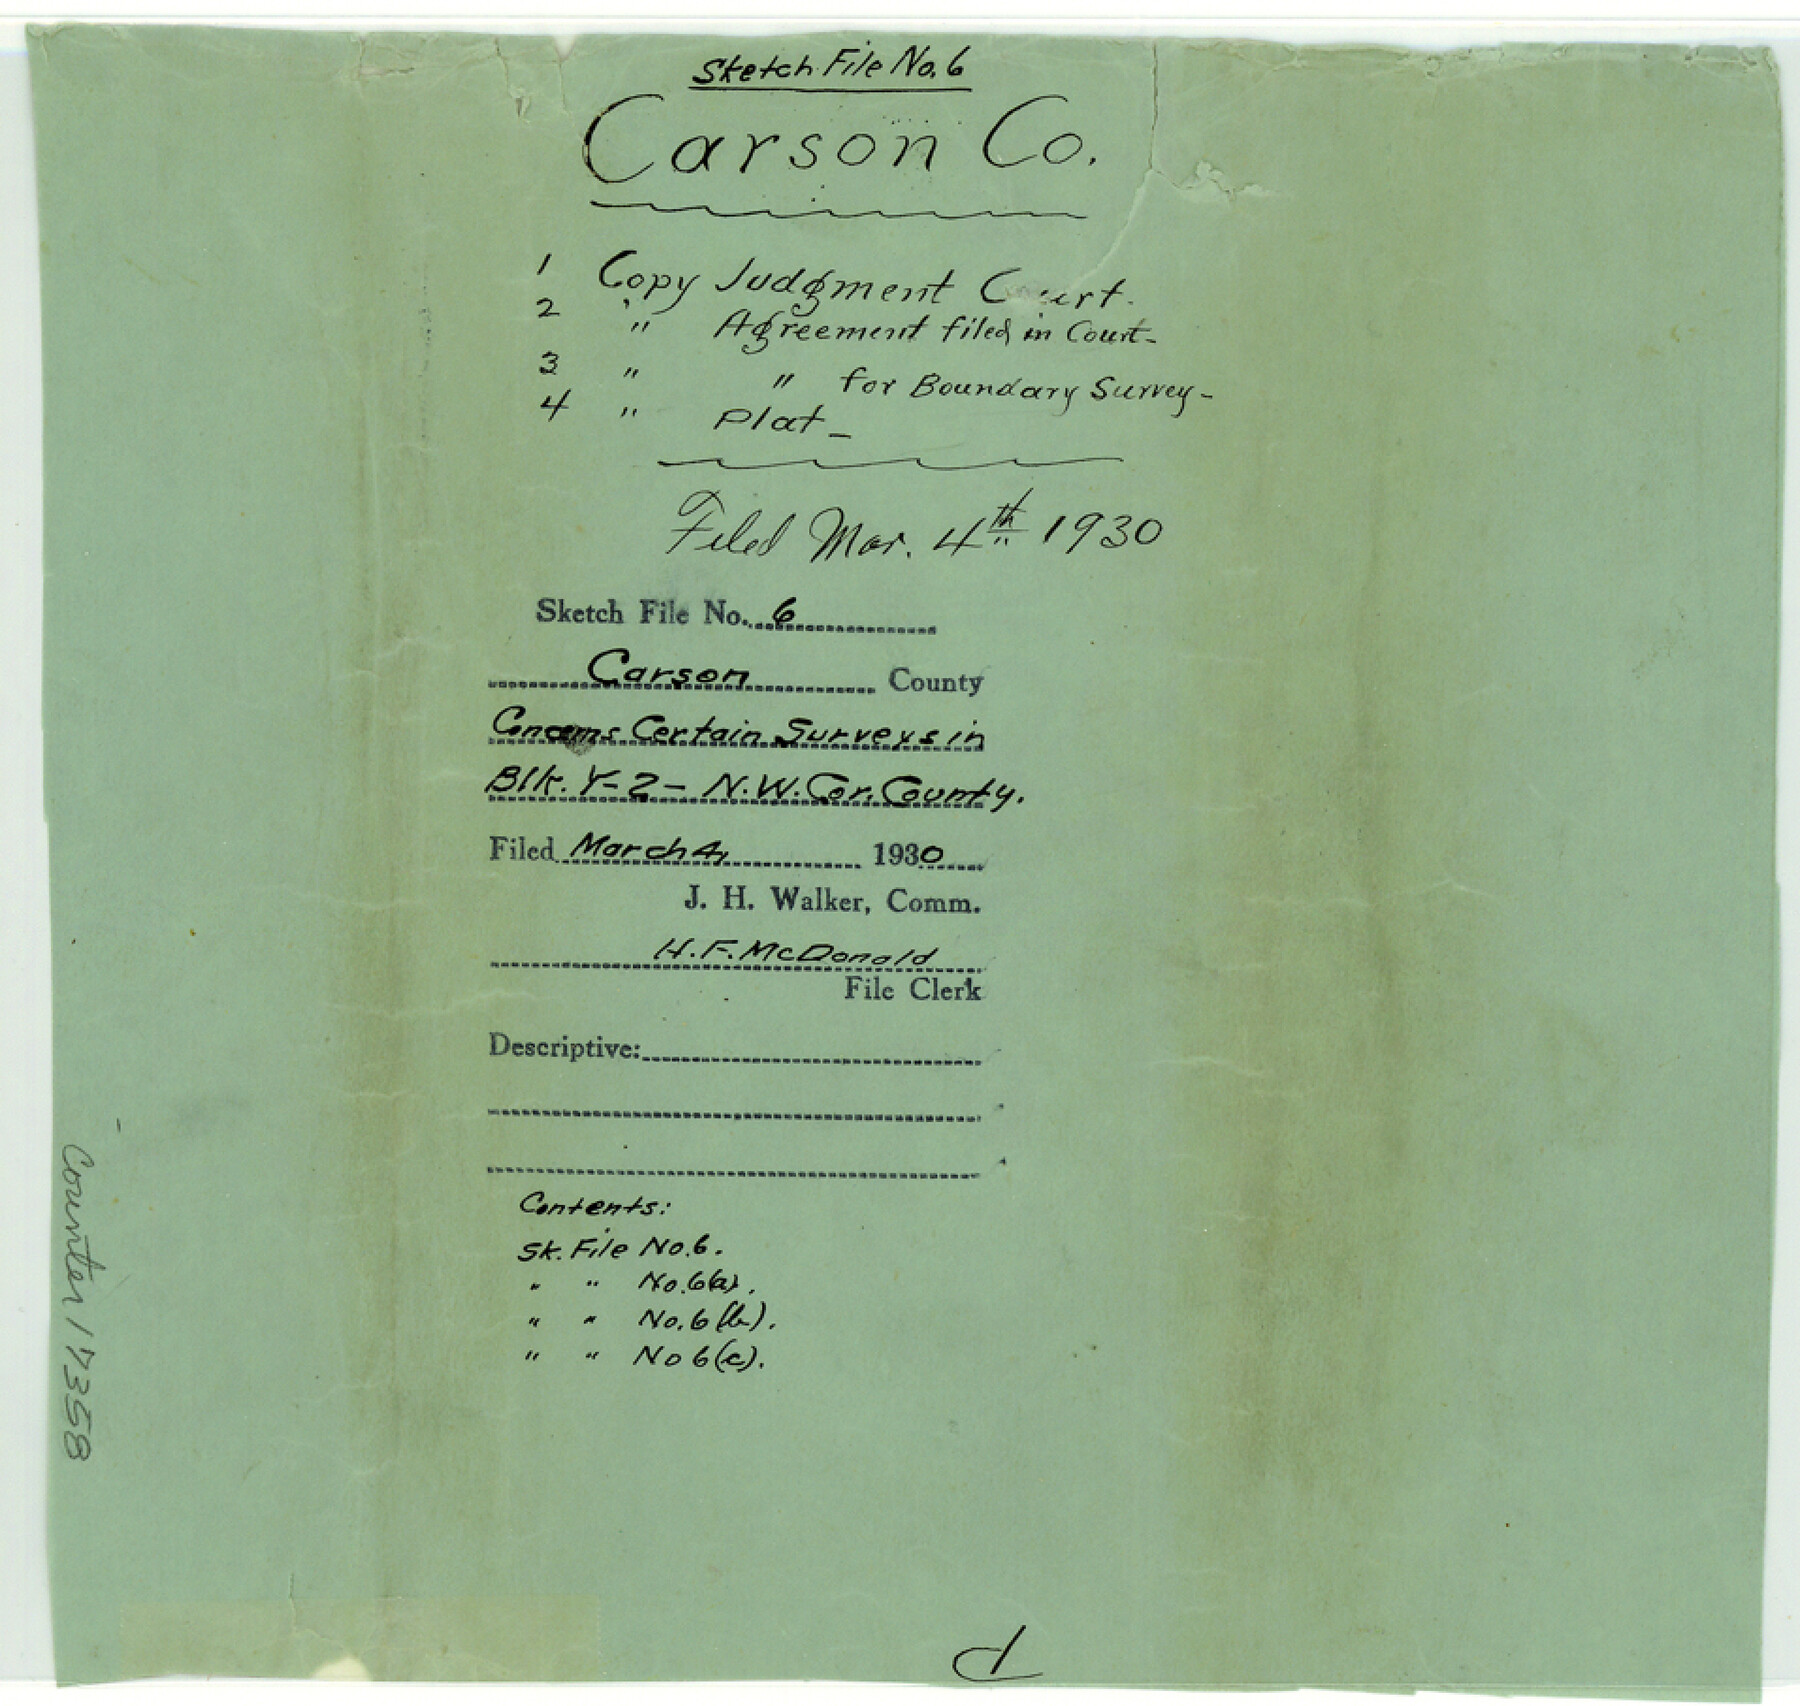 Sketch File No. 6
Carson Co.
1 Copy Judgment Court.
2 " Agreement filed in Court-
3 " " for Boundary Survey-
4 " Plat-
Filed Mar. 4th 1930
Sketch File No. 6
Carson County
Concerns Certain Surveys in
Blk. Y-2- N.W. Cor. County.
Filed March 4, 1930
J. H. Walker, Comm.
H. F. McDonald
File Clerk
Descriptive:
Contents:
Sk. File No. 6.
" " No. 6(a).
" " No. 6(b).
" " No 6(c).
Counter 17358
d